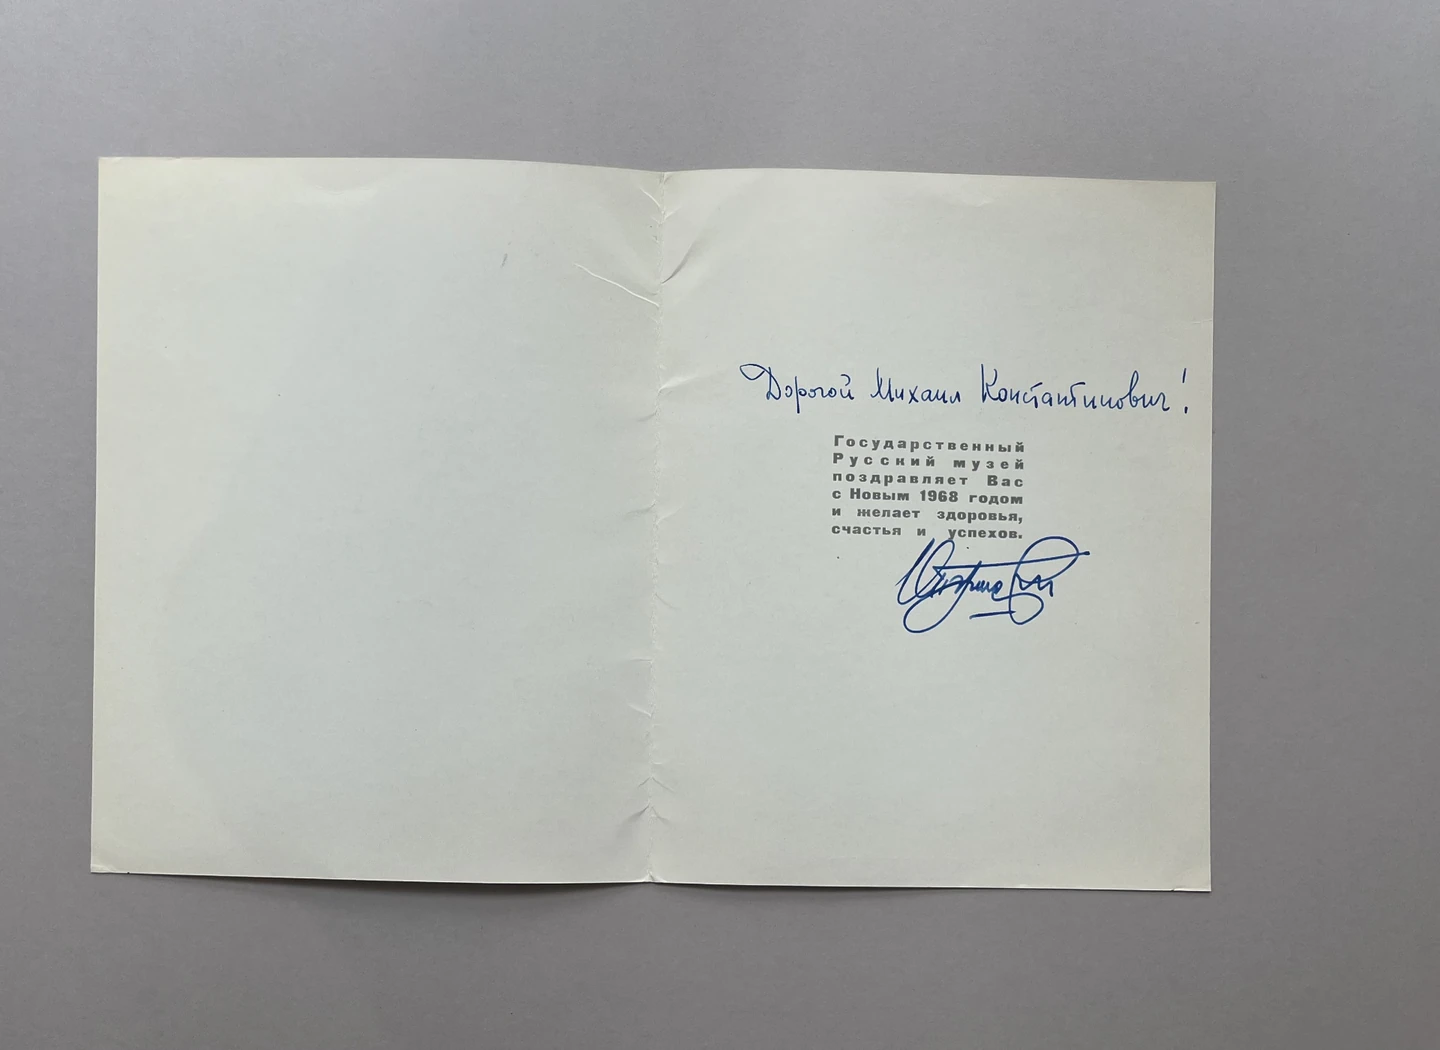 Дорогой Михаил Константинович!
Государственный
Русский музей
поздравляет Вас
с Новым 1968 годом
и желает здоровья,
счастья и успехов.